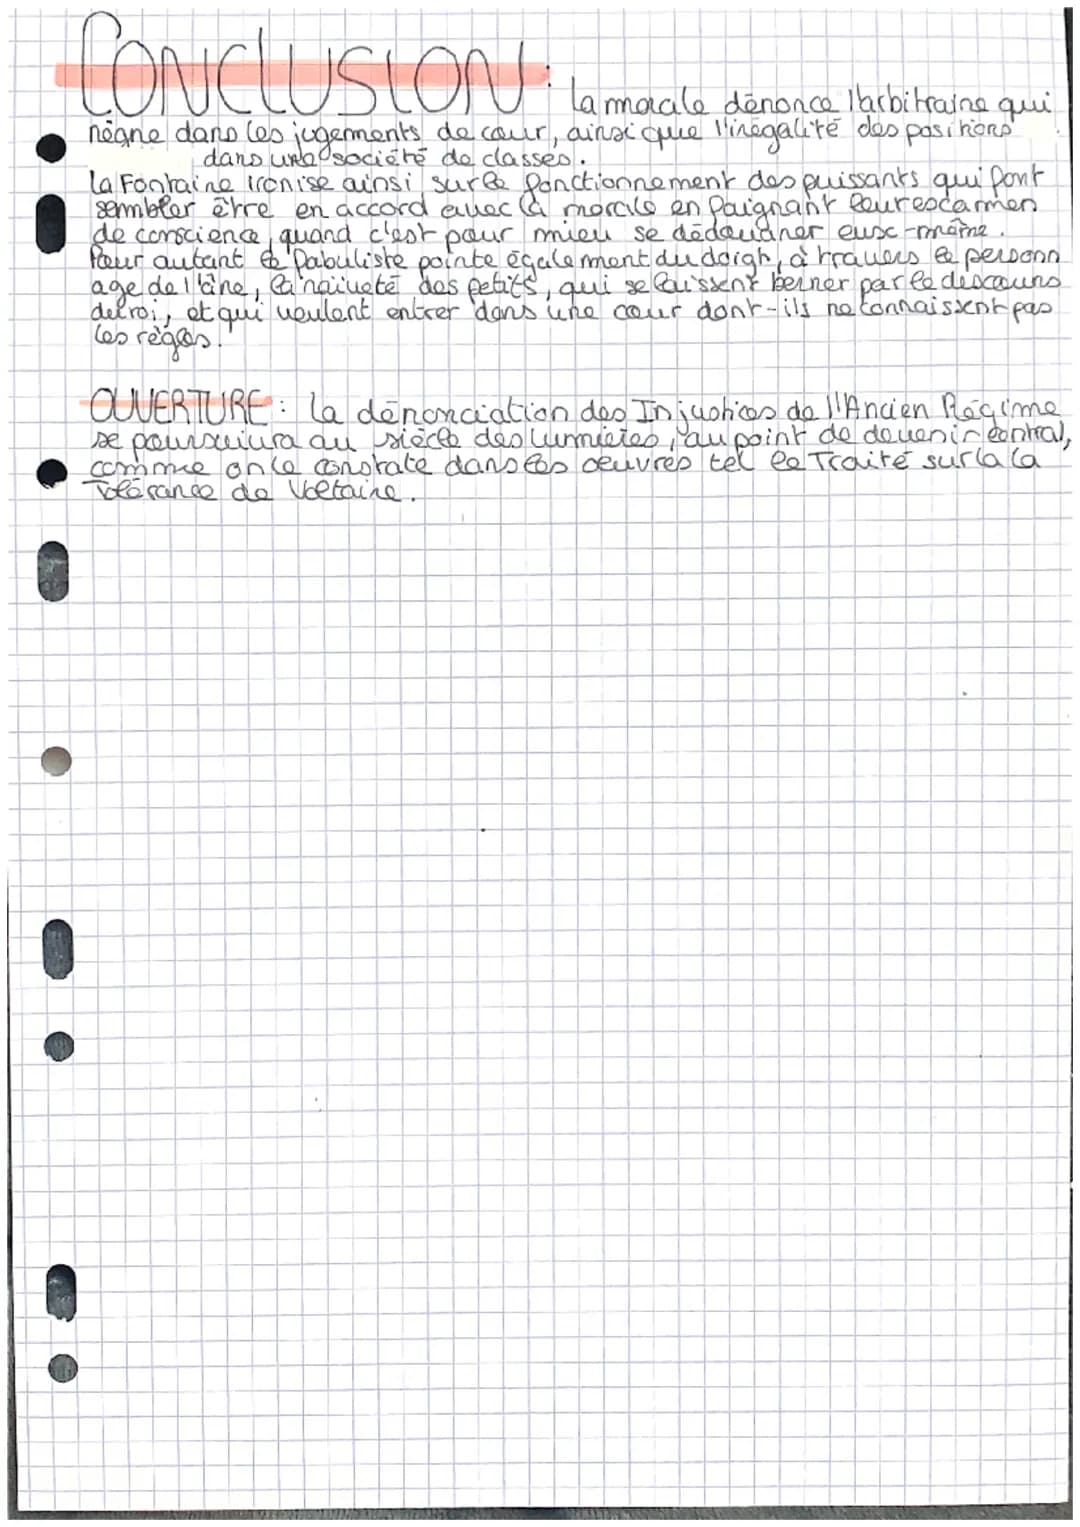 CONCLUSION : la morale dénonce l'arbitraire qui
règne dans les jugements de cour, ainsi que l'inégalité des positions
dans une société de classes.
La Fontaine ironise ainsi sur le fonctionnement des puissants qui font
sembler être en accord avec la morale en faignant leurescamen
de conscience, quand c'est pour mieu se dédouaner eux-même.
Pour autant le fabuliste pointe également du doigh, à travers le personn
age de l'âne, la naïveté des petits, qui se laissent berner par le discours
du roi, et qui veulent entrer dans une cour dont-ils ne connaissent pas
les règles.
OUVERTURE : la dénonciation des Injustices de l'Ancien Régime
se poursuivra au siècle des lummières, au point de devenir central,
comme on le constate dans les oeuvres tel le Traité sur la la
Tolérance de Voltaire.